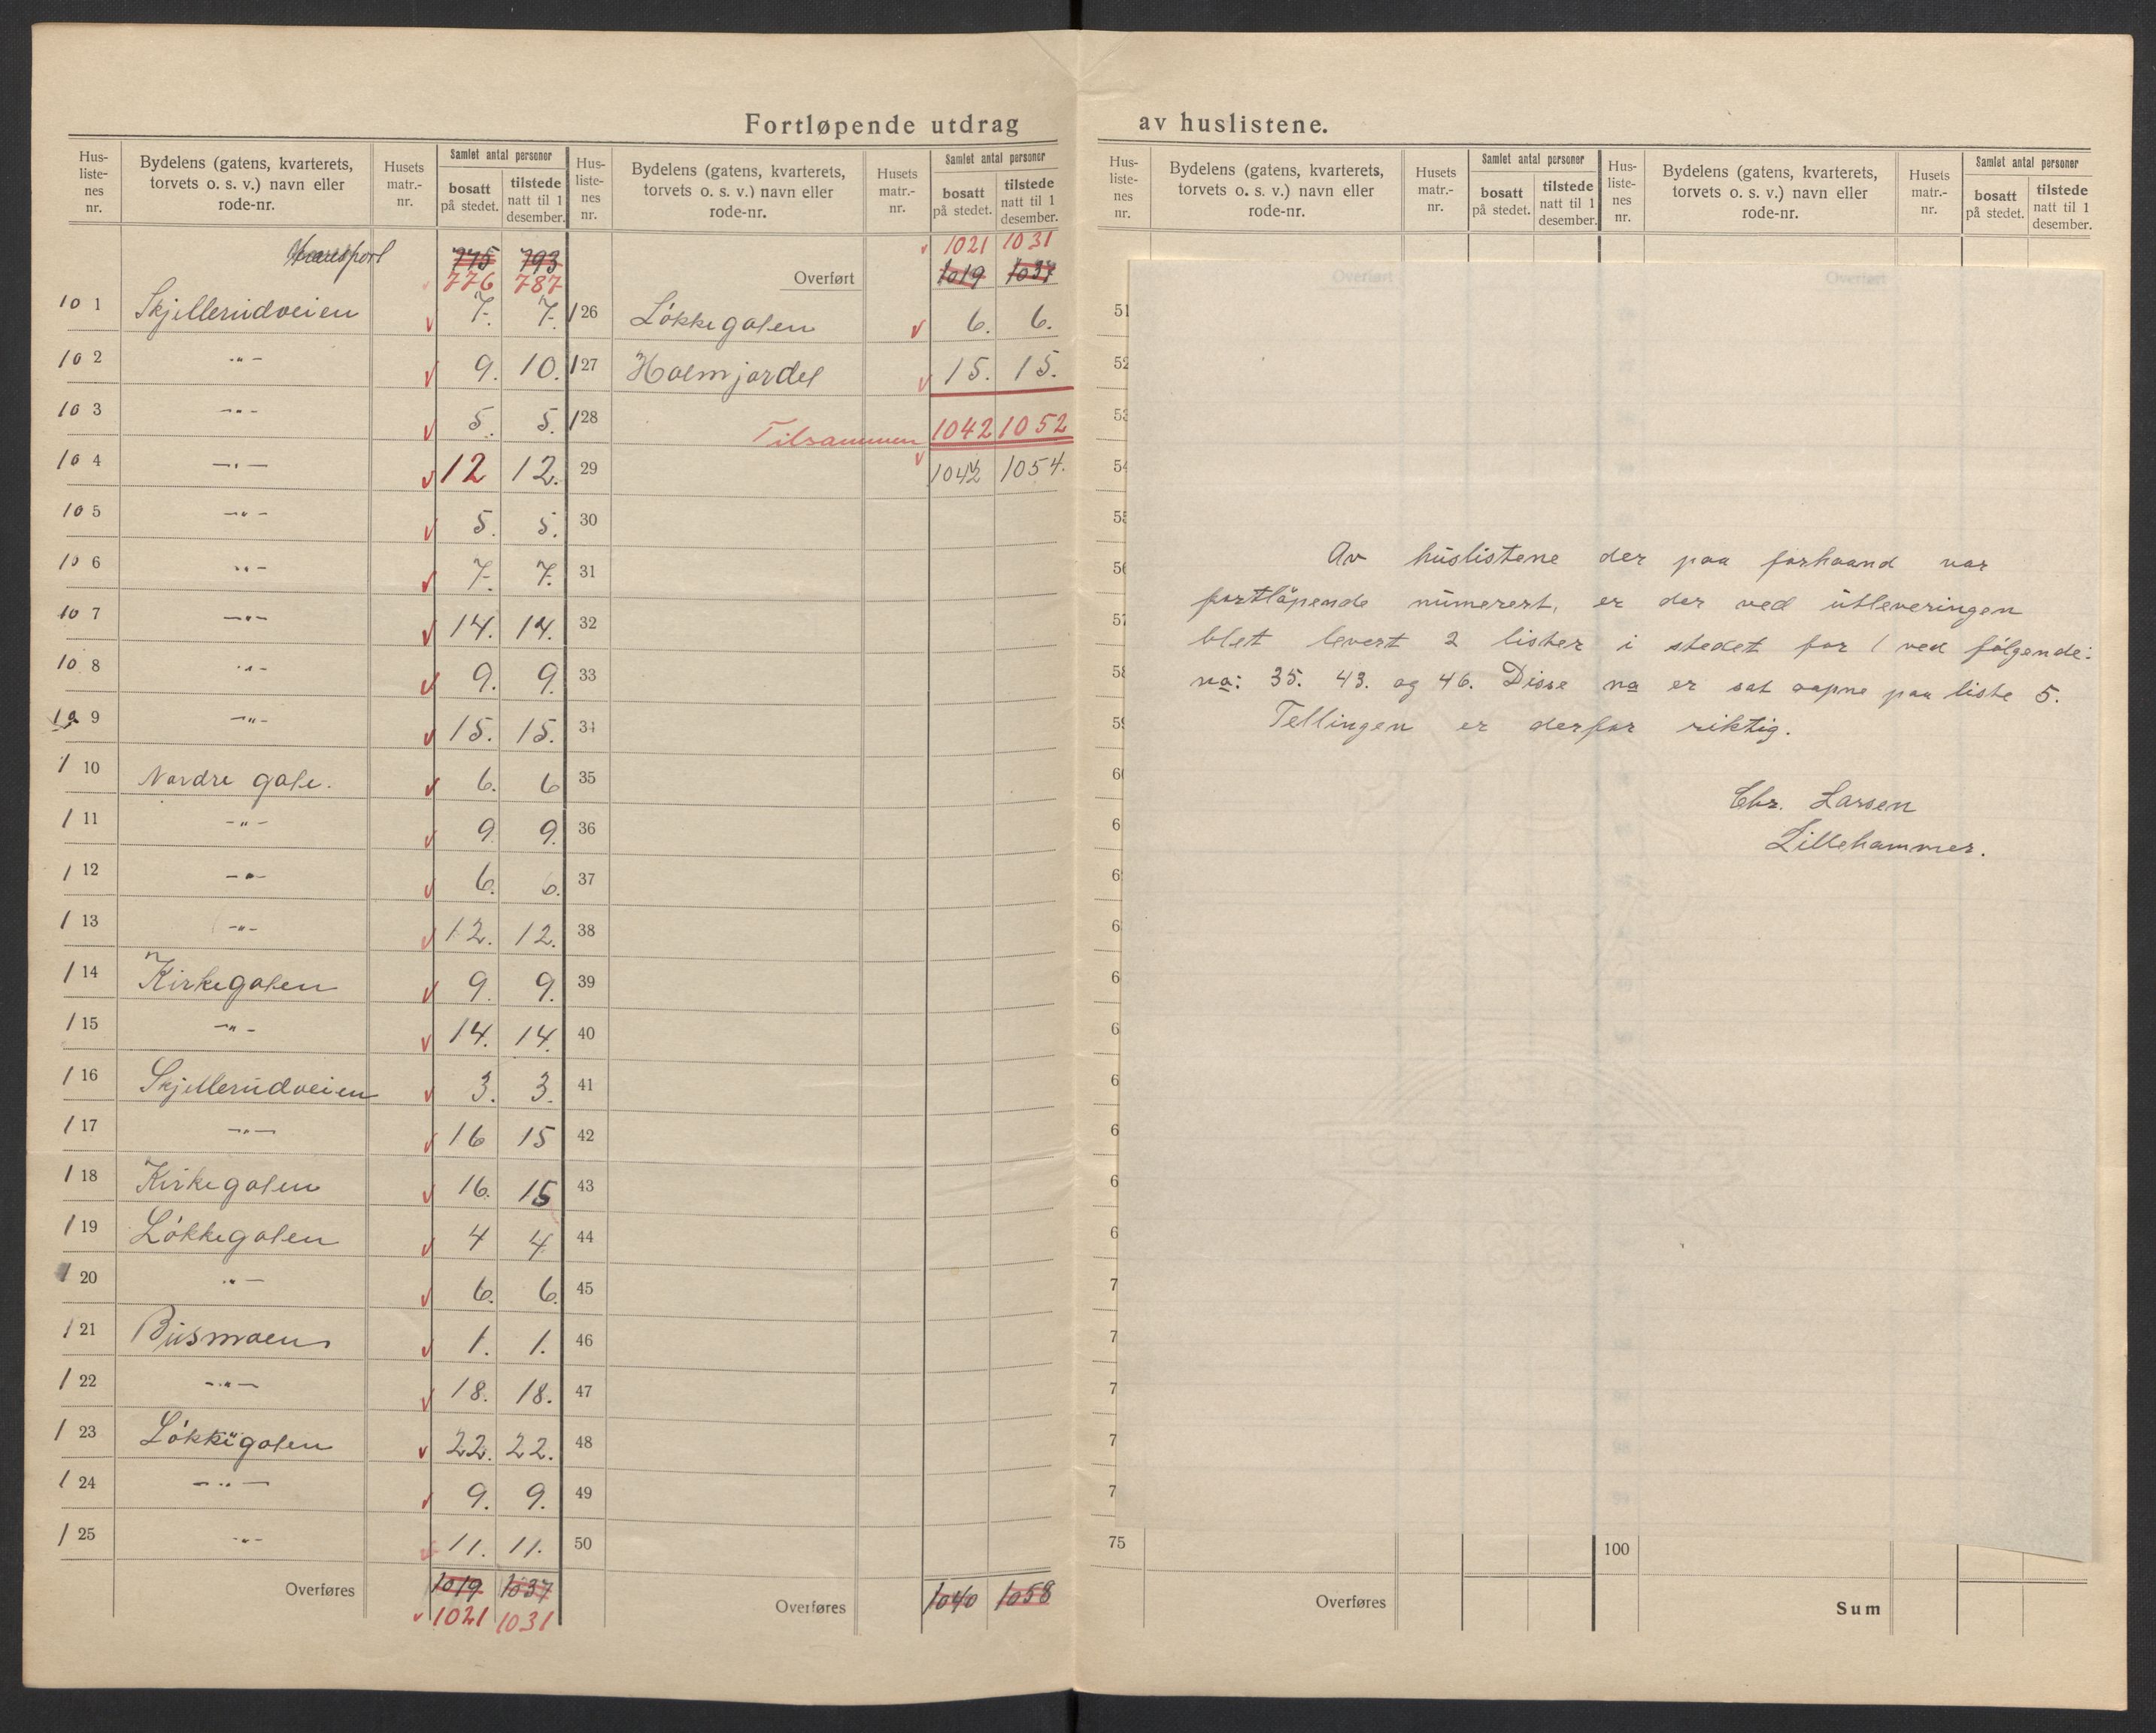 Fortløpende utdrag av huslistene.
Hus-liste-nes nr. Bydelens (gatens, kvarterets, torvets o. s. v.) navn eller rode-nr. Husets matr.-nr. Samlet antal personer bosatt på stedet. tilstede natt til 1 desember.
Transport 775 793
776 787
101 Skjellerudveien 7. 7.
102 -"- 9. 10.
103 -"- 5. 5.
104 -"- 12 12.
105 -"- 5. 5.
106 -"- 7. 7.
107 -"- 14. 14.
108 -"- 9. 9.
109 -"- 15. 15.
110 Nordre gate. 6. 6
111 -"- 9 9.
112 -"- 6. 6.
113 -"- 12. 12.
114 Kirkegaten 9. 9.
115 -"- 14. 14.
116 Skjellerudveien 3. 3.
117 -"- 16 15
118 Kirkegaten 16. 15
119 Løkkegaten 4 4
120 -"- 6. 6.
121 Busmoen 1. 1.
122 -"- 18. 18.
123 Løkkegaten 22. 22.
124 -"- 9. 9.
125 -"- 11. 11.
Overføres 1019 1037
1021 1031
Hus-liste-nes nr. Bydelens (gatens, kvarterets, torvets o. s. v.) navn eller rode-nr. Husets matr.-nr. Samlet antal personer bosatt på stedet. tilstede natt til 1 desember.
1021 1031
Overført 1019 1037
126 Løkkegaten 6. 6.
127 Holmjordet 15. 15.
128 Tilsammen 1042 1052
29 1042 1054.
30
31
32
33
34
35
36
37
38
39
40
41
42
43
44
45
46
47
48
49
50
Overføres 1040 1058
Hus-liste-nes nr. Bydelens (gatens, kvarterets, torvets o. s. v.) navn eller rode-nr. Husets matr.-nr. Samlet antal personer bosatt på stedet. tilstede natt til 1 desember.
Hus-liste-nes nr. Bydelens (gatens, kvarterets, torvets o. s. v.) navn eller rode-nr. Husets matr.-nr. Samlet antal personer bosatt på stedet. tilstede natt til 1 desember.
51
52
53
54
55
56
57
58
59
60
Av huslistene der paa forhaand var
fortløpende numerert, er der ved utleveringen
blet levert 2 lister i stedet for 1 ved følgende:
no: 35. 43. og 46. Disse no er sat aapne paa liste 5.
Tellingen er derfor riktig.
Chr. Larsen
Lillehammer.
75 100
Overføres Sum